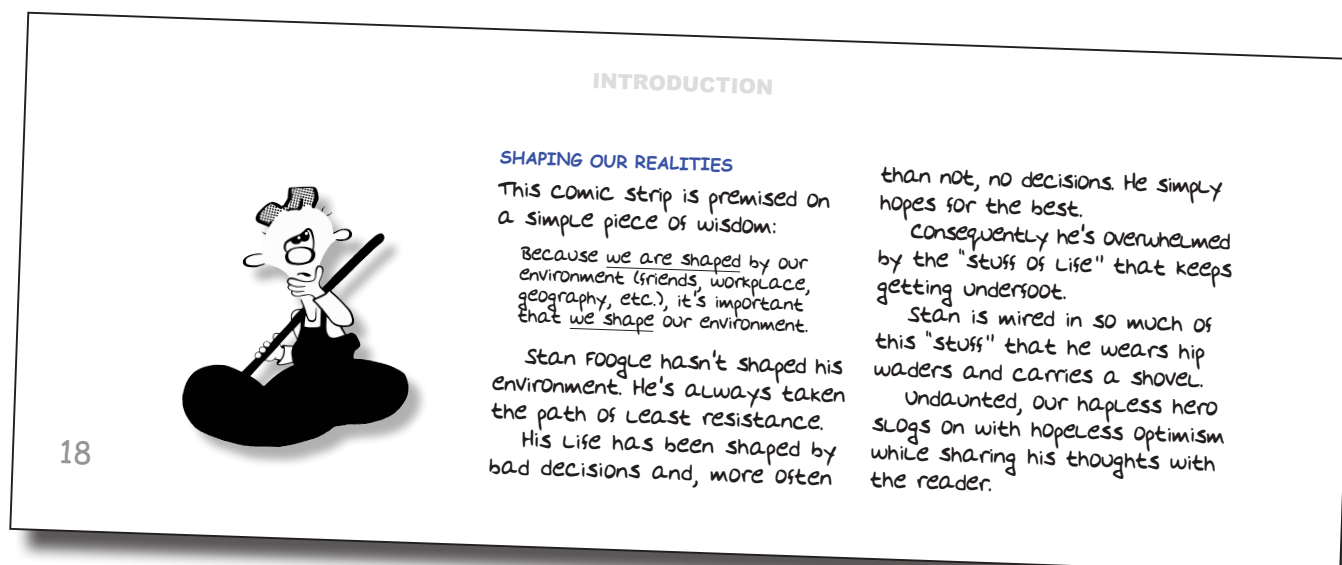 INTRODUCTION
SHAPING OUR REALITIES
This comic strip is premised on
a simple piece of wisdom:
Because we are shaped by our
environment (friends, workplace,
geography, etc.), it's important
that we shape our environment.
Stan Foogle hasn't shaped his
environment. He's always taken
the path of least resistance.
His life has been shaped by
bad decisions and, more often
than not, no decisions. He simply
hopes for the best.
Consequently he's overwhelmed
by the "stuff of life" that keeps
getting underfoot.
Stan is mired in so much of
this "stuff" that he wears hip
waders and carries a shovel.
Undaunted, our hapless hero
slogs on with hopeless optimism
while sharing his thoughts with
the reader.
18